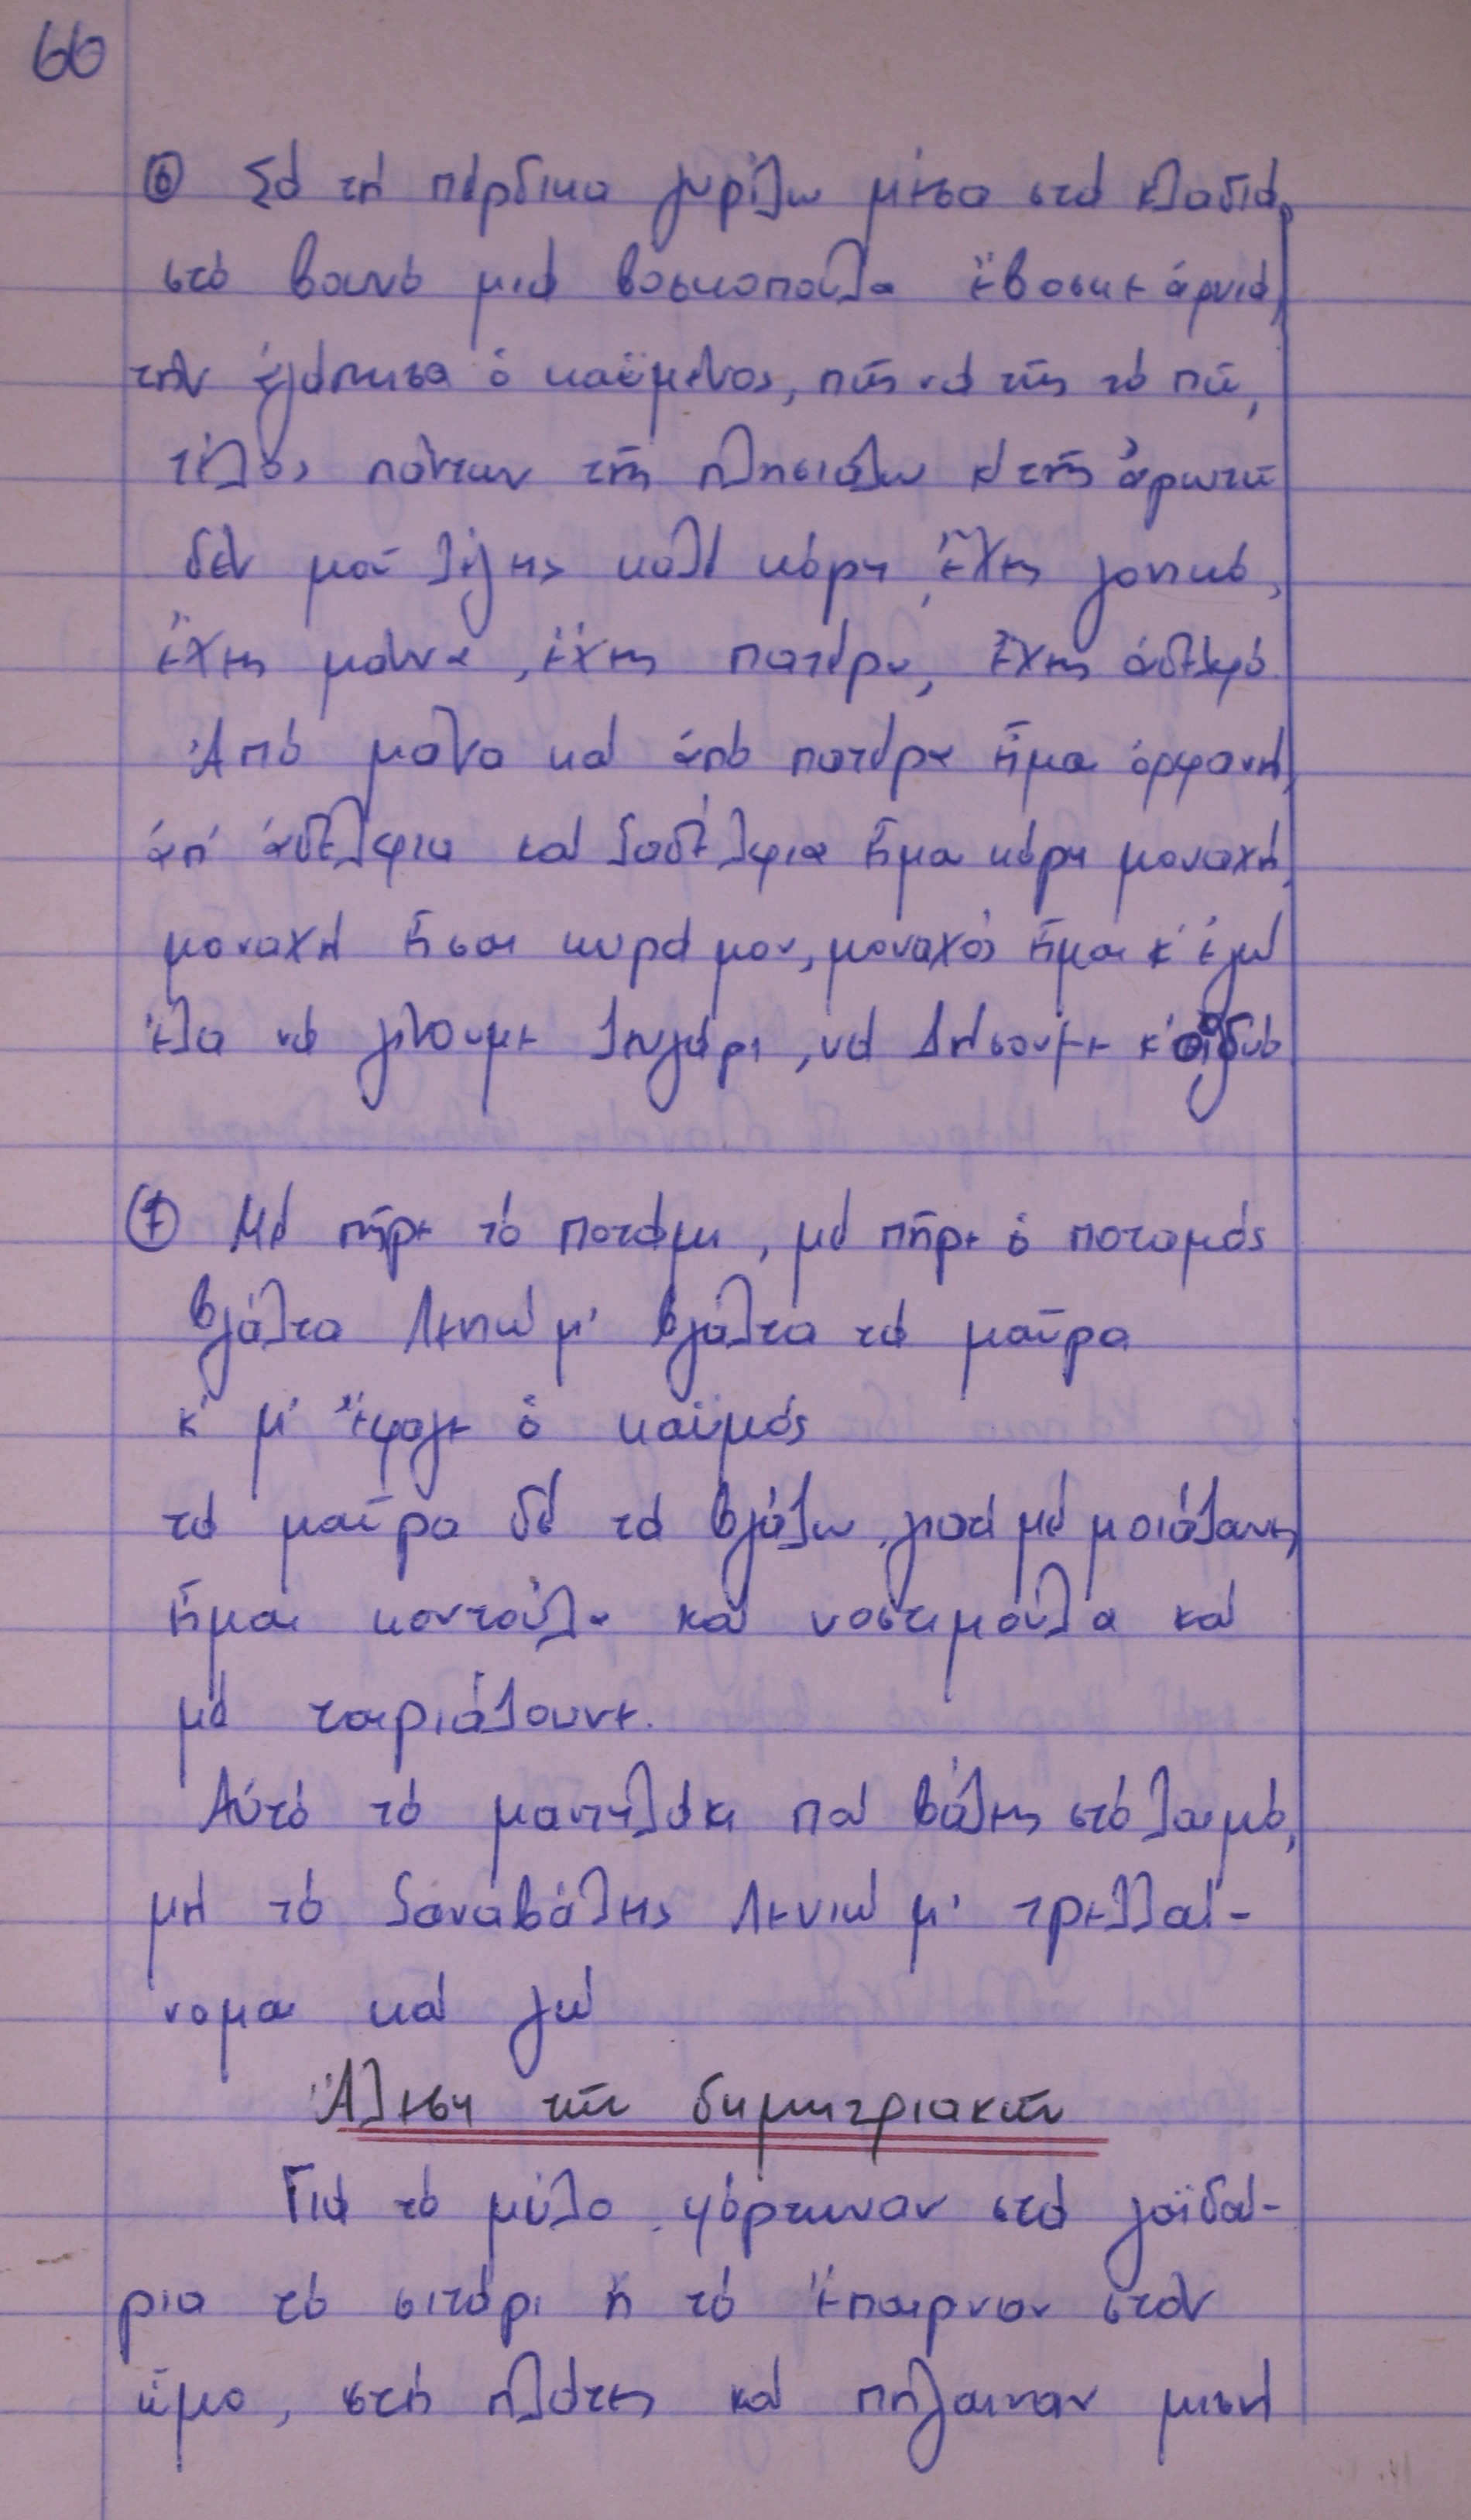 66
⑥ Σά τή πέρδικα γυρίζω μέσα στά κλαδιά,
στό βουνό μιά βοσκοπούλα ἔβοσκε ἀρνιά,
τήν ἐγάπησα ὁ καϋμένος, πῶς νά τῆς τό πῶ,
τέλος πάντων τῆς πλησιάζω κ τῆς ἀρωτῶ
δέν μοῦ λέγεις καλέ κόρη, ἔχεις γονικό,
ἔχεις μάννα, ἔχεις πατέρα, ἔχεις ἀδελφό.
Ἀπό μάνα καί ἀπό πατέρα εἶμαι ὀρφανή,
ἀπ' ἀδέλφια καί ξαδέλφια εἶμαι κόρη μοναχή,
μοναχή εἶσαι κυρά μου, μοναχός εἶμαι κ' ἐγώ
ἔλα νά γίνουμε ζευγάρι, νά ζήσουμε κ' οἱ δυό
⑦ Μέ πῆρε τό ποτάμι, μέ πῆρε ὁ ποταμός
βγάλτα Λενιώ μ' βγάλτα τά μαῦρα
κ' μ' ἔφαγε ὁ καϋμός
τά μαῦρα δέ τά βγάζω, γιατί μέ μοιάζανε,
εἶμαι κοντούλα καί νοστιμούλα καί
μέ ταιριάζουνε.
Αὐτό τό μαντηλάκι πού βάζεις στό λαιμό,
μή τό ξαναβάλεις Λενιώ μ' τρελλαί-
νομαι καί γώ
Ἄλεση τῶν δημητριακῶν
Γιά τό μύλο φόρτωναν στά γαϊδού-
ρια τό σιτάρι ἤ τό ἔπαιρναν στόν
ὦμο, στή πλάτη καί πήγαιναν μισή